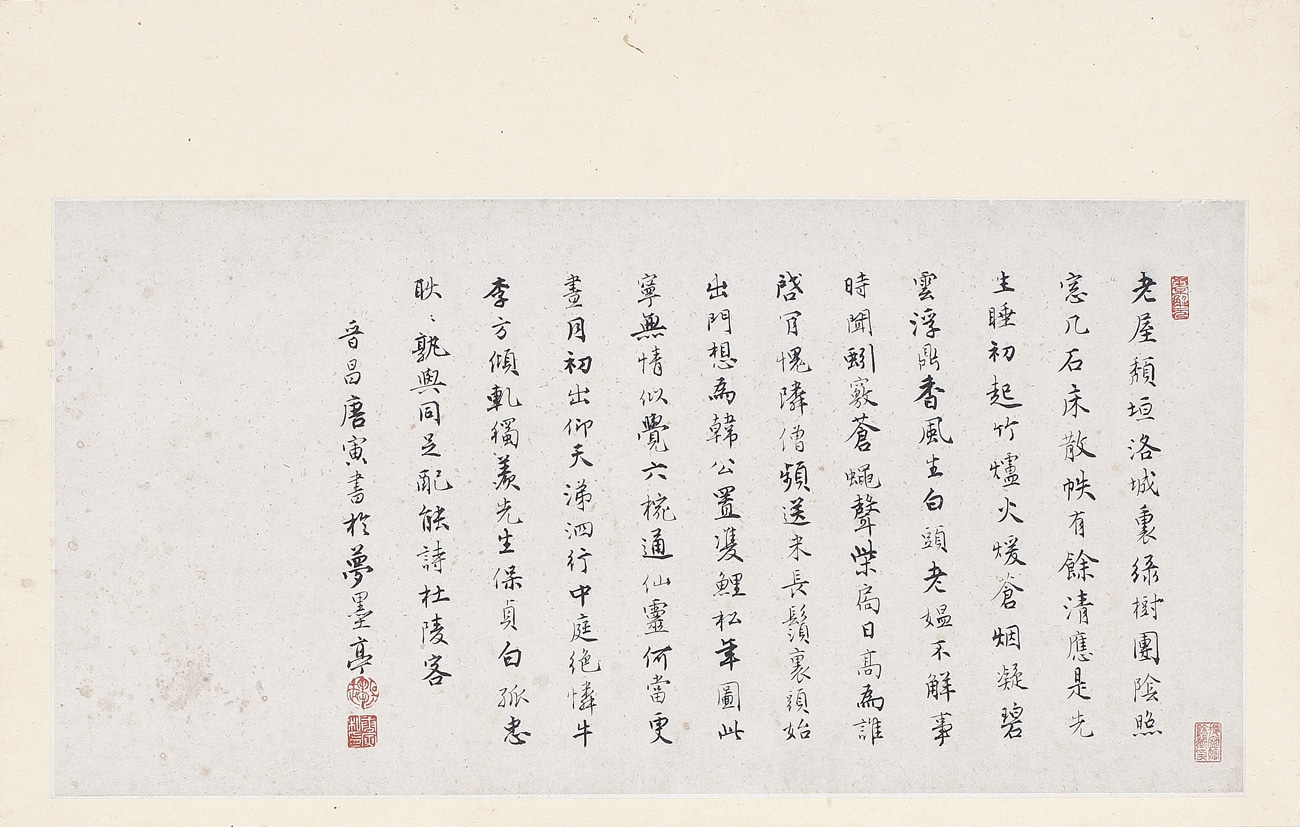 老屋頹垣洛城裏綠樹團陰照
窓几石床散帙有餘清應是先
生睡初起竹爐火煖蒼烟凝碧
雲浮鼎香風生白頭老媪不解事
時聞蚓竅蒼蠅聲柴扃日髙為誰
啓肎愧隣僧頻送米長鬚裹頭始
出門想為韓公置雙鯉松年圖此
寧無情似覺六椀通仙靈何當更
畫月初出仰天涕泗行中庭絶憐牛
李方傾軋獨羨先生保貞白孤忠
耿〻孰與同足配能詩杜陵客
晉昌唐寅書於夢墨亭